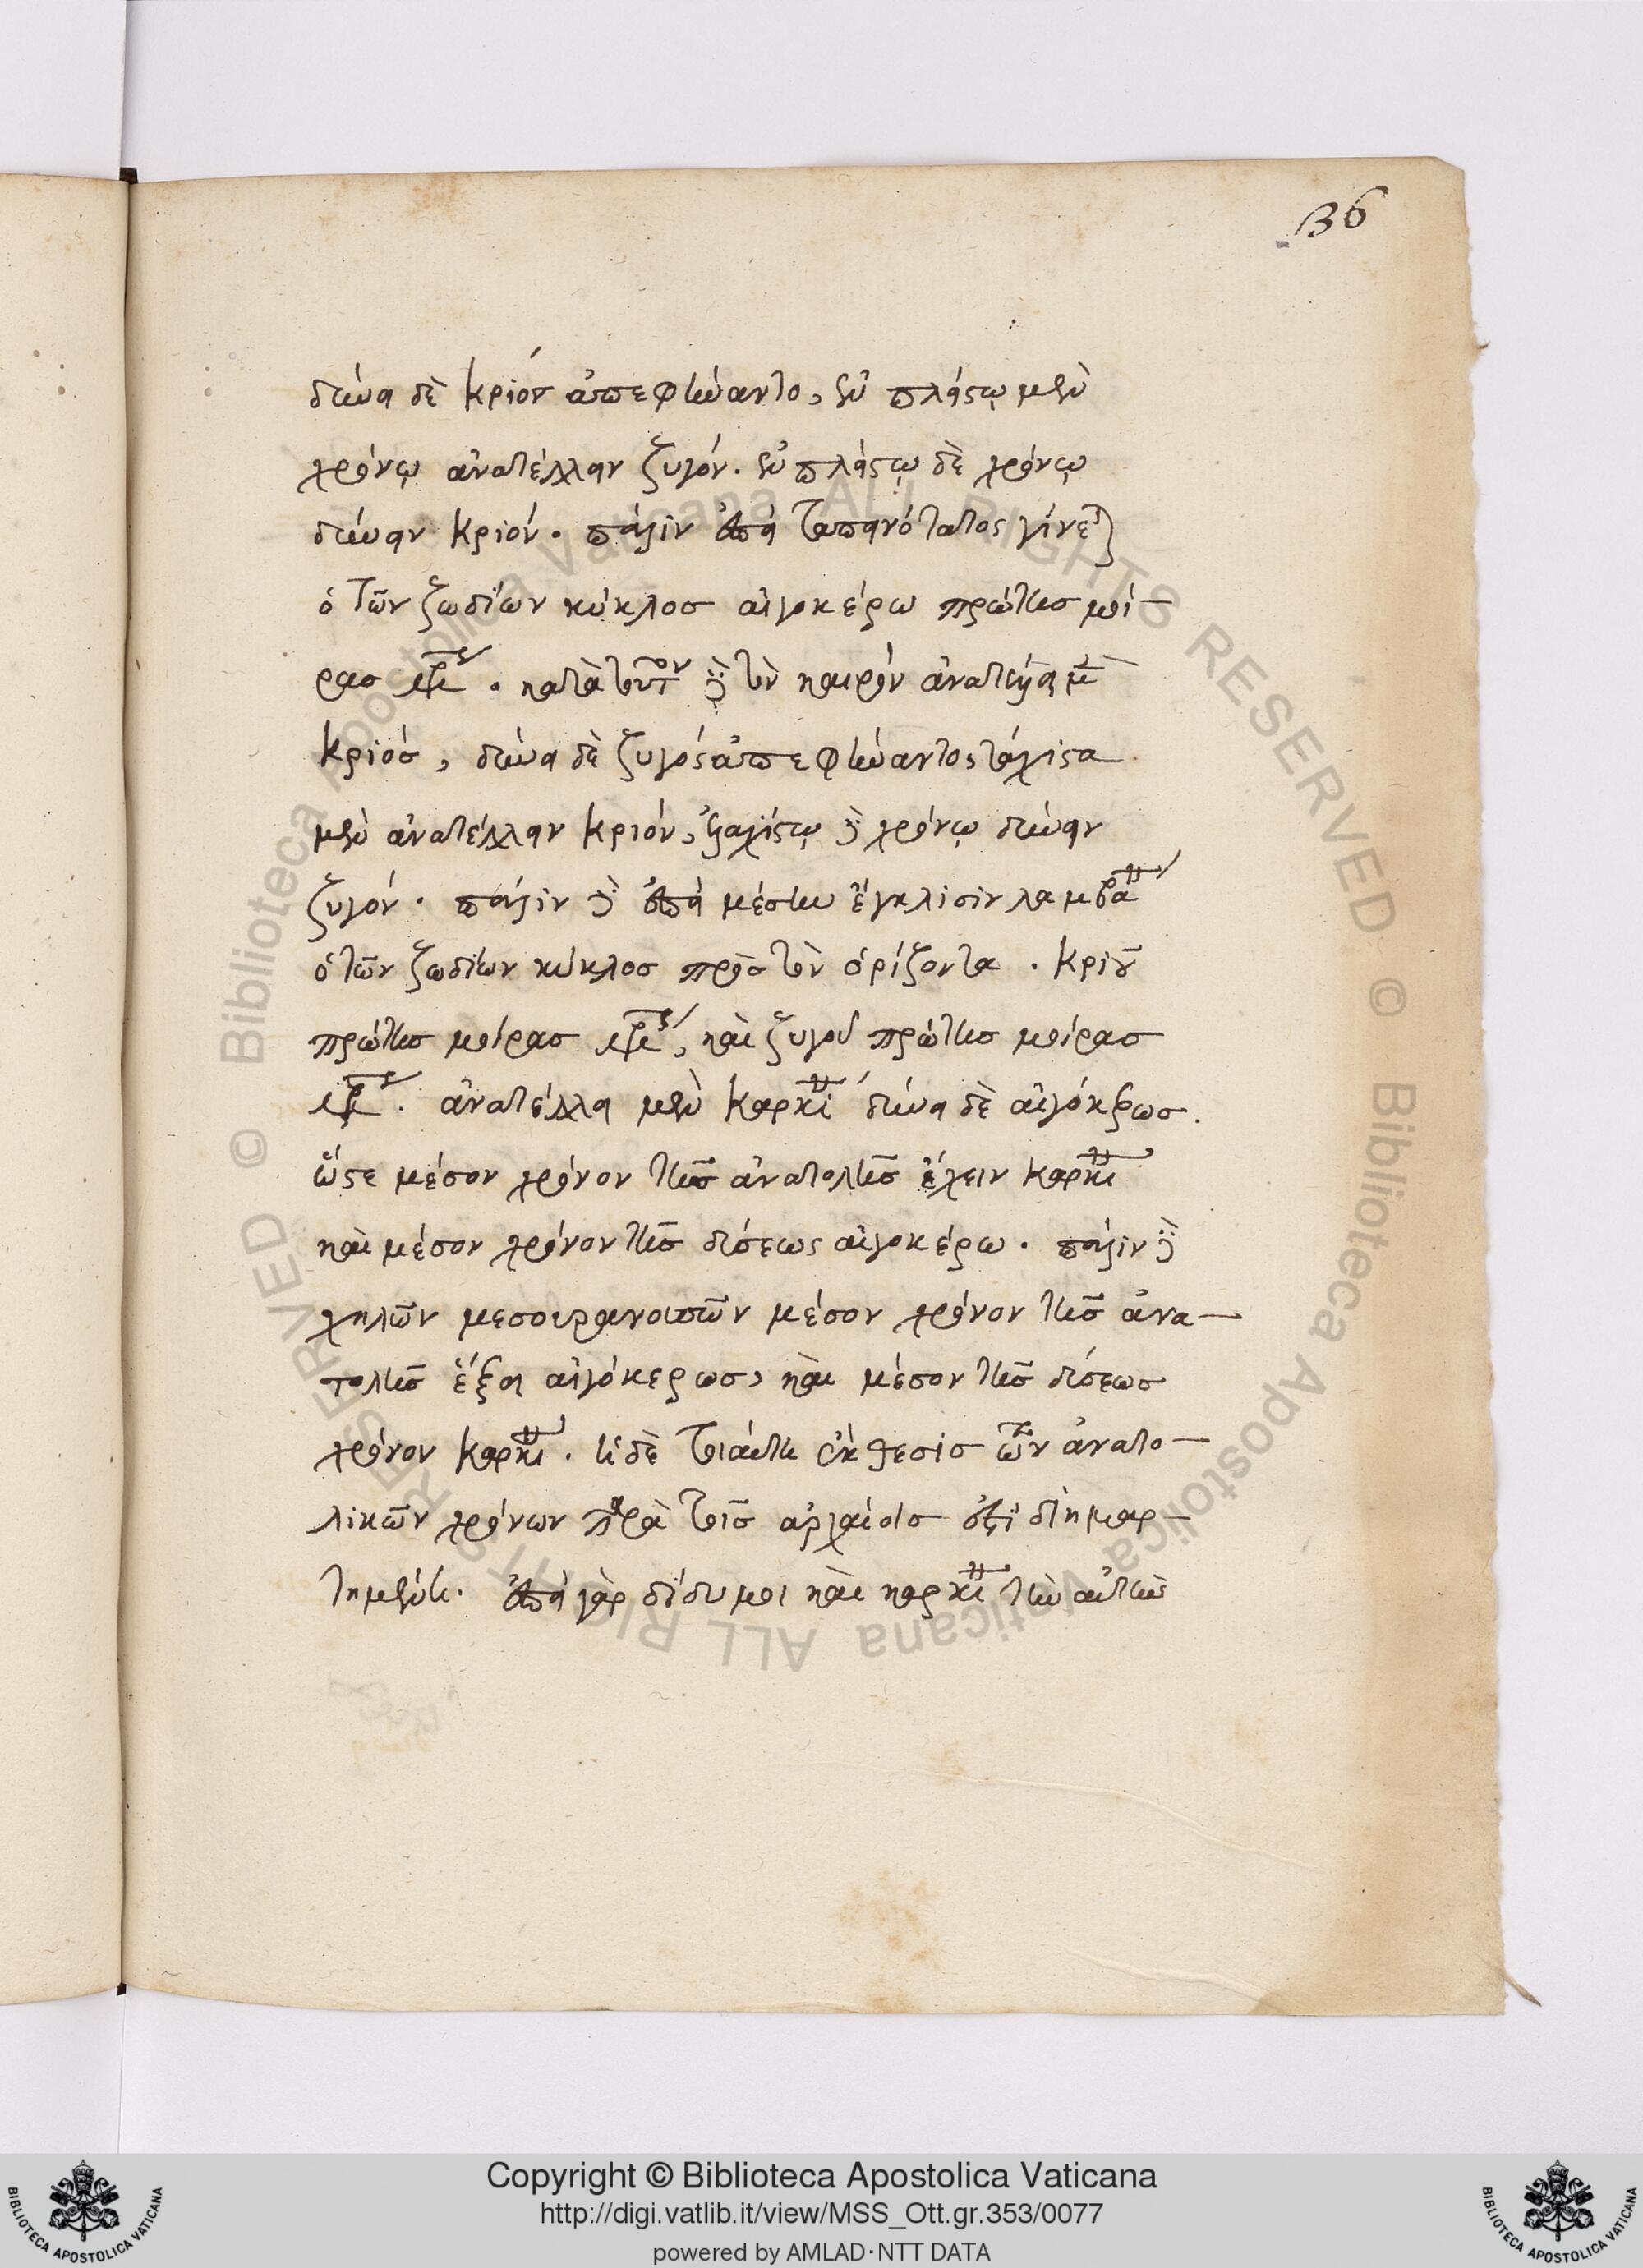 36
δύνει δὲ κριόσ ἀπεφήναντο, ἐν πλείστῳ μὲν
χρόνῳ ἀνατέλλειν ζυγόν. ἐν πλείστῳ δὲ χρόνῳ
δύνειν κριόν. πάλιν ἐπεὶ ταπεινότατος γίνεται
ὁ τῶν ζωδίων κύκλοσ αἰγοκέρω πρώτησ μοί-
ρασ κατὰ τοῦτον δὲ τὸν καιρὸν ἀνατέλλει μὲν
κριόσ, δύνει δὲ ζυγόσ ἀπεφήναντο, τάχιστα
μὲν ἀνατέλλειν κριόν, ἐλαχίστῳ δὲ χρόνῳ δύνειν
ζυγόν. πάλιν δὲ ἐπεὶ μέσην ἔγκλισιν λαμβά
ὁ τῶν ζωδίων κύκλοσ πρὸσ τὸν ὁρίζοντα. κριοῦ
πρώτησ μοίρασ καὶ ζυγοῦ πρώτησ μοίρασ
ἀνατέλλει μὲν καρκί δύνει δὲ αἰγόκερωσ.
ὥστε μέσον χρόνον τῆσ ἀνατολῆσ ἔχειν καρκί
καὶ μέσον χρόνον τῆσ δύσεως αἰγοκέρω. πάλιν δὲ
χηλῶν μεσουρανουσῶν μέσον χρόνον τῆσ ἀνα-
τολῆσ ἕξει αἰγόκερωσ, καὶ μέσον τῆσ δύσεωσ
χρόνον καρκί. ἡ δὲ τοιαύτη ἔκθεσισ τῶν ἀνατο-
λικῶν χρόνων παρὰ τοῖσ ἀρχαίοισ ἐστὶ διημαρ-
τημένη. ἐπεὶ γὰρ δίδυμοι καὶ καρκί τὴν αὐτὴν
Copyright © Biblioteca Apostolica Vaticana
http://digi.vatlib.it/view/MSS_Ott.gr.353/0077
powered by AMLAD·NTT DATA
© Biblioteca Apostolica Vaticana ALL RIGHTS RESERVED © Biblioteca Apostolica Vaticana ALL RIGHTS RESERVED
BIBLIOTECA APOSTOLICA VATICANA
BIBLIOTECA APOSTOLICA VATICANA